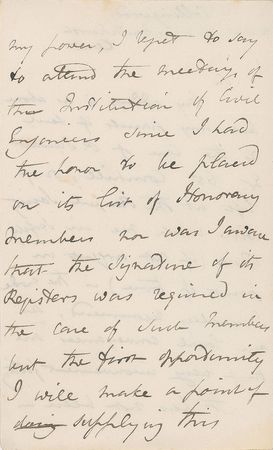 my power, I regret to say
to attend the meetings of
the Institution of Civil
Engineers since I had
the honor to be placed
on its list of Honorary
members nor was I aware
that the signature of its
Registers was required in
the case of such members
but the first opportunity
I will make a point of
doing supplying this